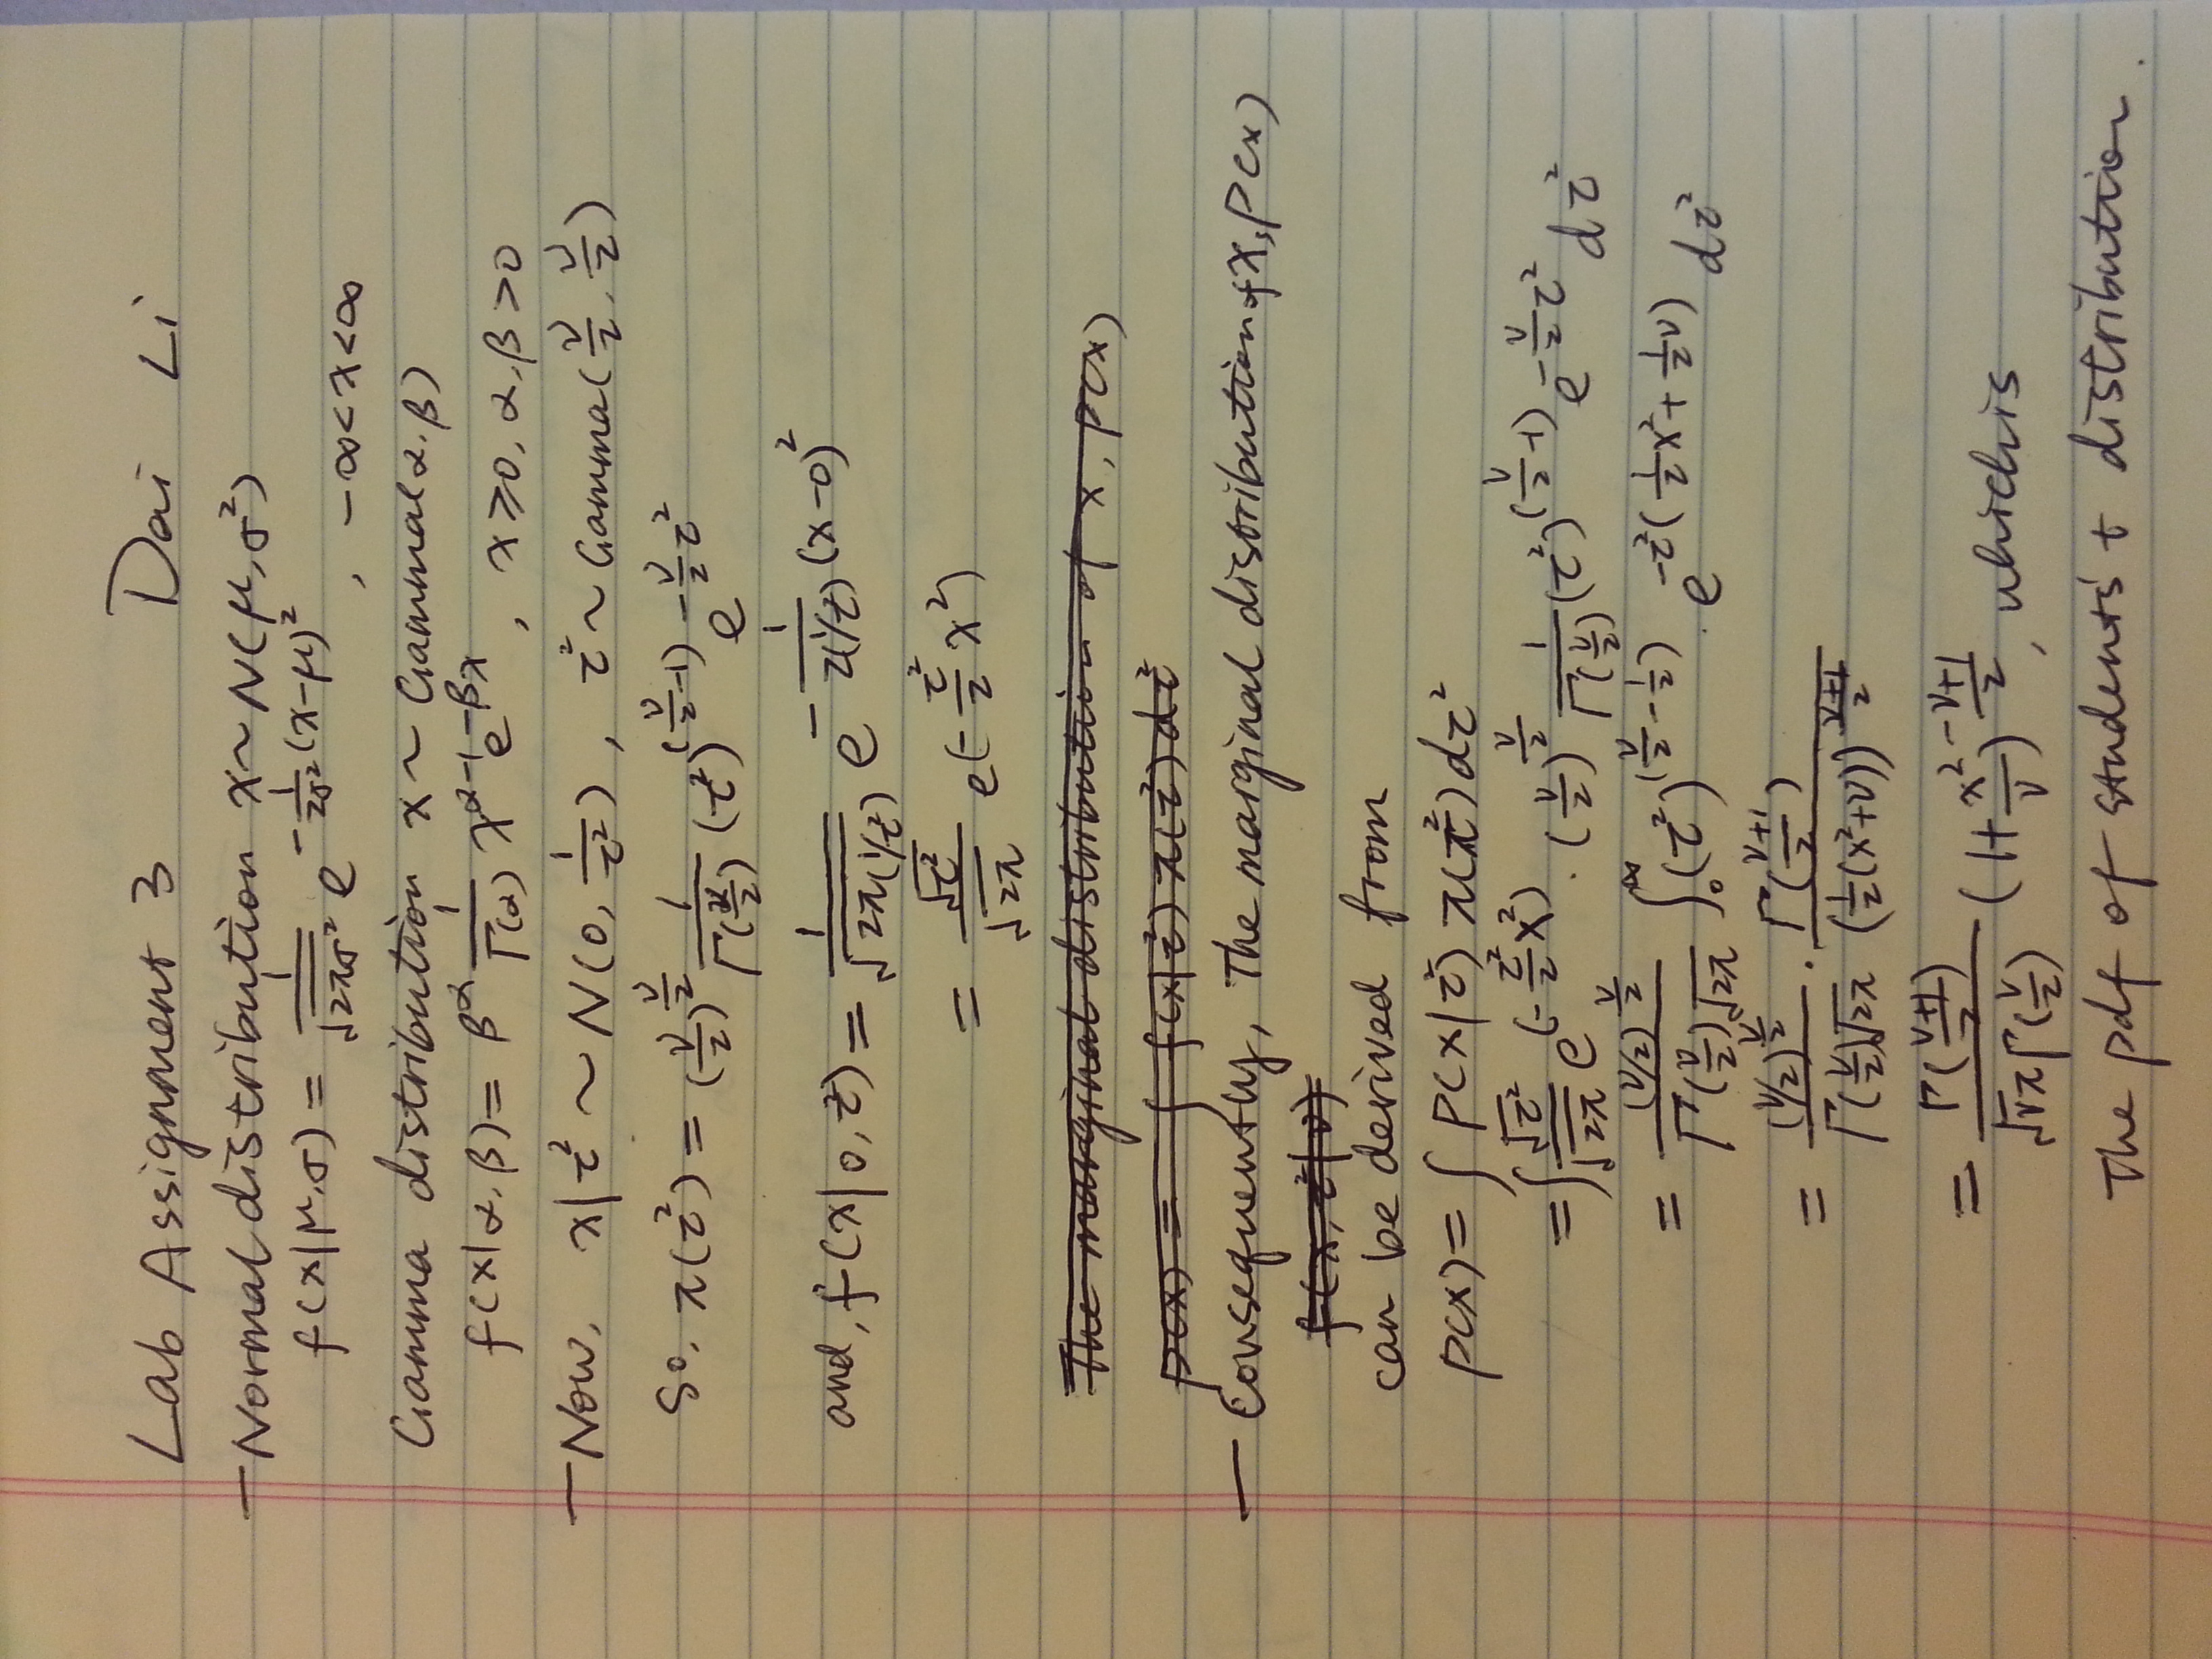 Lab Assignment 3 Dai Li
— Normal distribution x ~ N(μ, σ²)
f(x|μ,σ) = 1/√(2πσ²) e^(-1/(2σ²) (x-μ)²) , -∞<x<∞
Gamma distribution x ~ Gamma(α, β)
f(x|α, β) = β^α 1/Γ(α) x^(α-1) e^(-βx) , x ≥ 0, α, β > 0
— Now, x|τ² ~ N(0, 1/τ²) , τ² ~ Gamma(ν/2, ν/2)
So, π(τ²) = (ν/2)^(ν/2) 1/Γ(ν/2) (τ²)^(ν/2 -1) e^(-ν/2 τ²)
and, f(x|0,τ) = 1/√(2π(1/τ²)) e^(-1/(2(1/τ²)) (x-0)²)
= √τ²/√2π e(-τ²/2 x²)
The marginal distribution of x, p(x)
p(x) = ∫ f(x|τ²) π(τ²) dτ²
— Consequently, The marginal distribution of x, p(x)
f(x, τ²|ν)
can be derived from
p(x) = ∫ p(x|τ²) π(τ²) dτ²
= ∫ √τ²/√2π e(-τ²/2 x²) · (ν/2)^(ν/2) 1/Γ(ν/2) (τ²)^(ν/2 -1) e^(-ν/2 τ²) dτ²
= (ν/2)^(ν/2) / Γ(ν/2)√2π ∫₀^∞ (τ²)^(ν/2 - 1/2) · e^(-τ²(1/2 x² + 1/2 ν)) dτ²
= (ν/2)^(ν/2) / Γ(ν/2)√2π · Γ((ν+1)/2) / (1/2 (x²+ν))^((ν+1)/2)
= Γ((ν+1)/2) / √νπ Γ(ν/2) (1+ x²/ν)^(-(ν+1)/2) , which is
the pdf of student's t distribution.